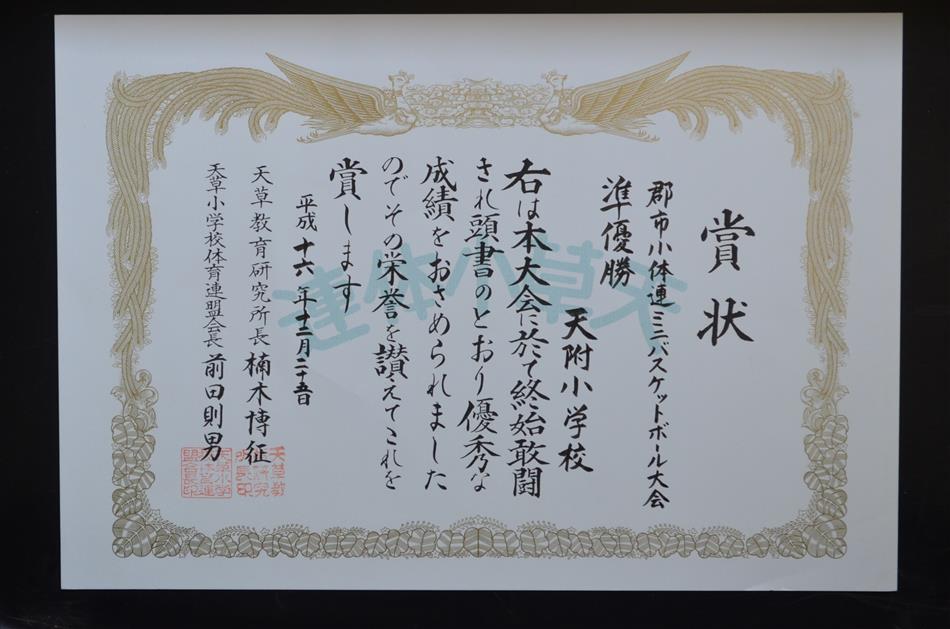 賞状
郡市小体連ミニバスケットボール大会
準優勝
天附小学校
右は本大会に於て終始敢闘
され頭書のとおり優秀な
成績をおさめられました
のでその栄誉を讃えてこれを
賞します
平成十六年十二月二十五日
天草教育研究所長 楠木博征
天草小学校体育連盟会長 前田則男
天草小体連